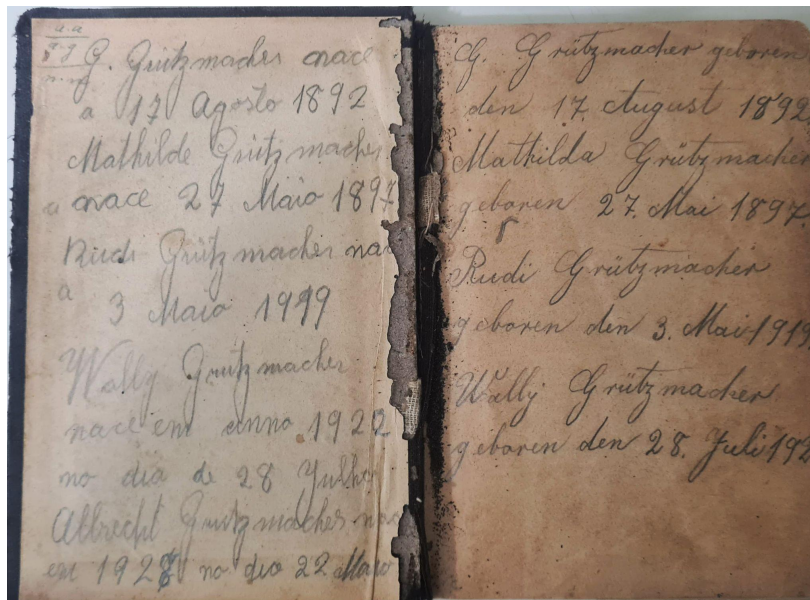 G. Grützmacher nace
a 17 Agosto 1892
Mathilde Grützmacher
a nace 27 Maio 1897
Rudi Grützmacher
a 3 Maio 1919
Wally Grützmacher
nace em anno 1922
no dia de 28 Julho
Albrecht Grützmacher
em 192 no dia 22 Maio
G. Grützmacher geboren
den 17. August 1892
Mathilda Grützmacher
geboren 27. Mai 1897.
Rudi Grützmacher
geboren den 3. Mai 191
Wally Grützmacher
geboren den 28. Juli 192